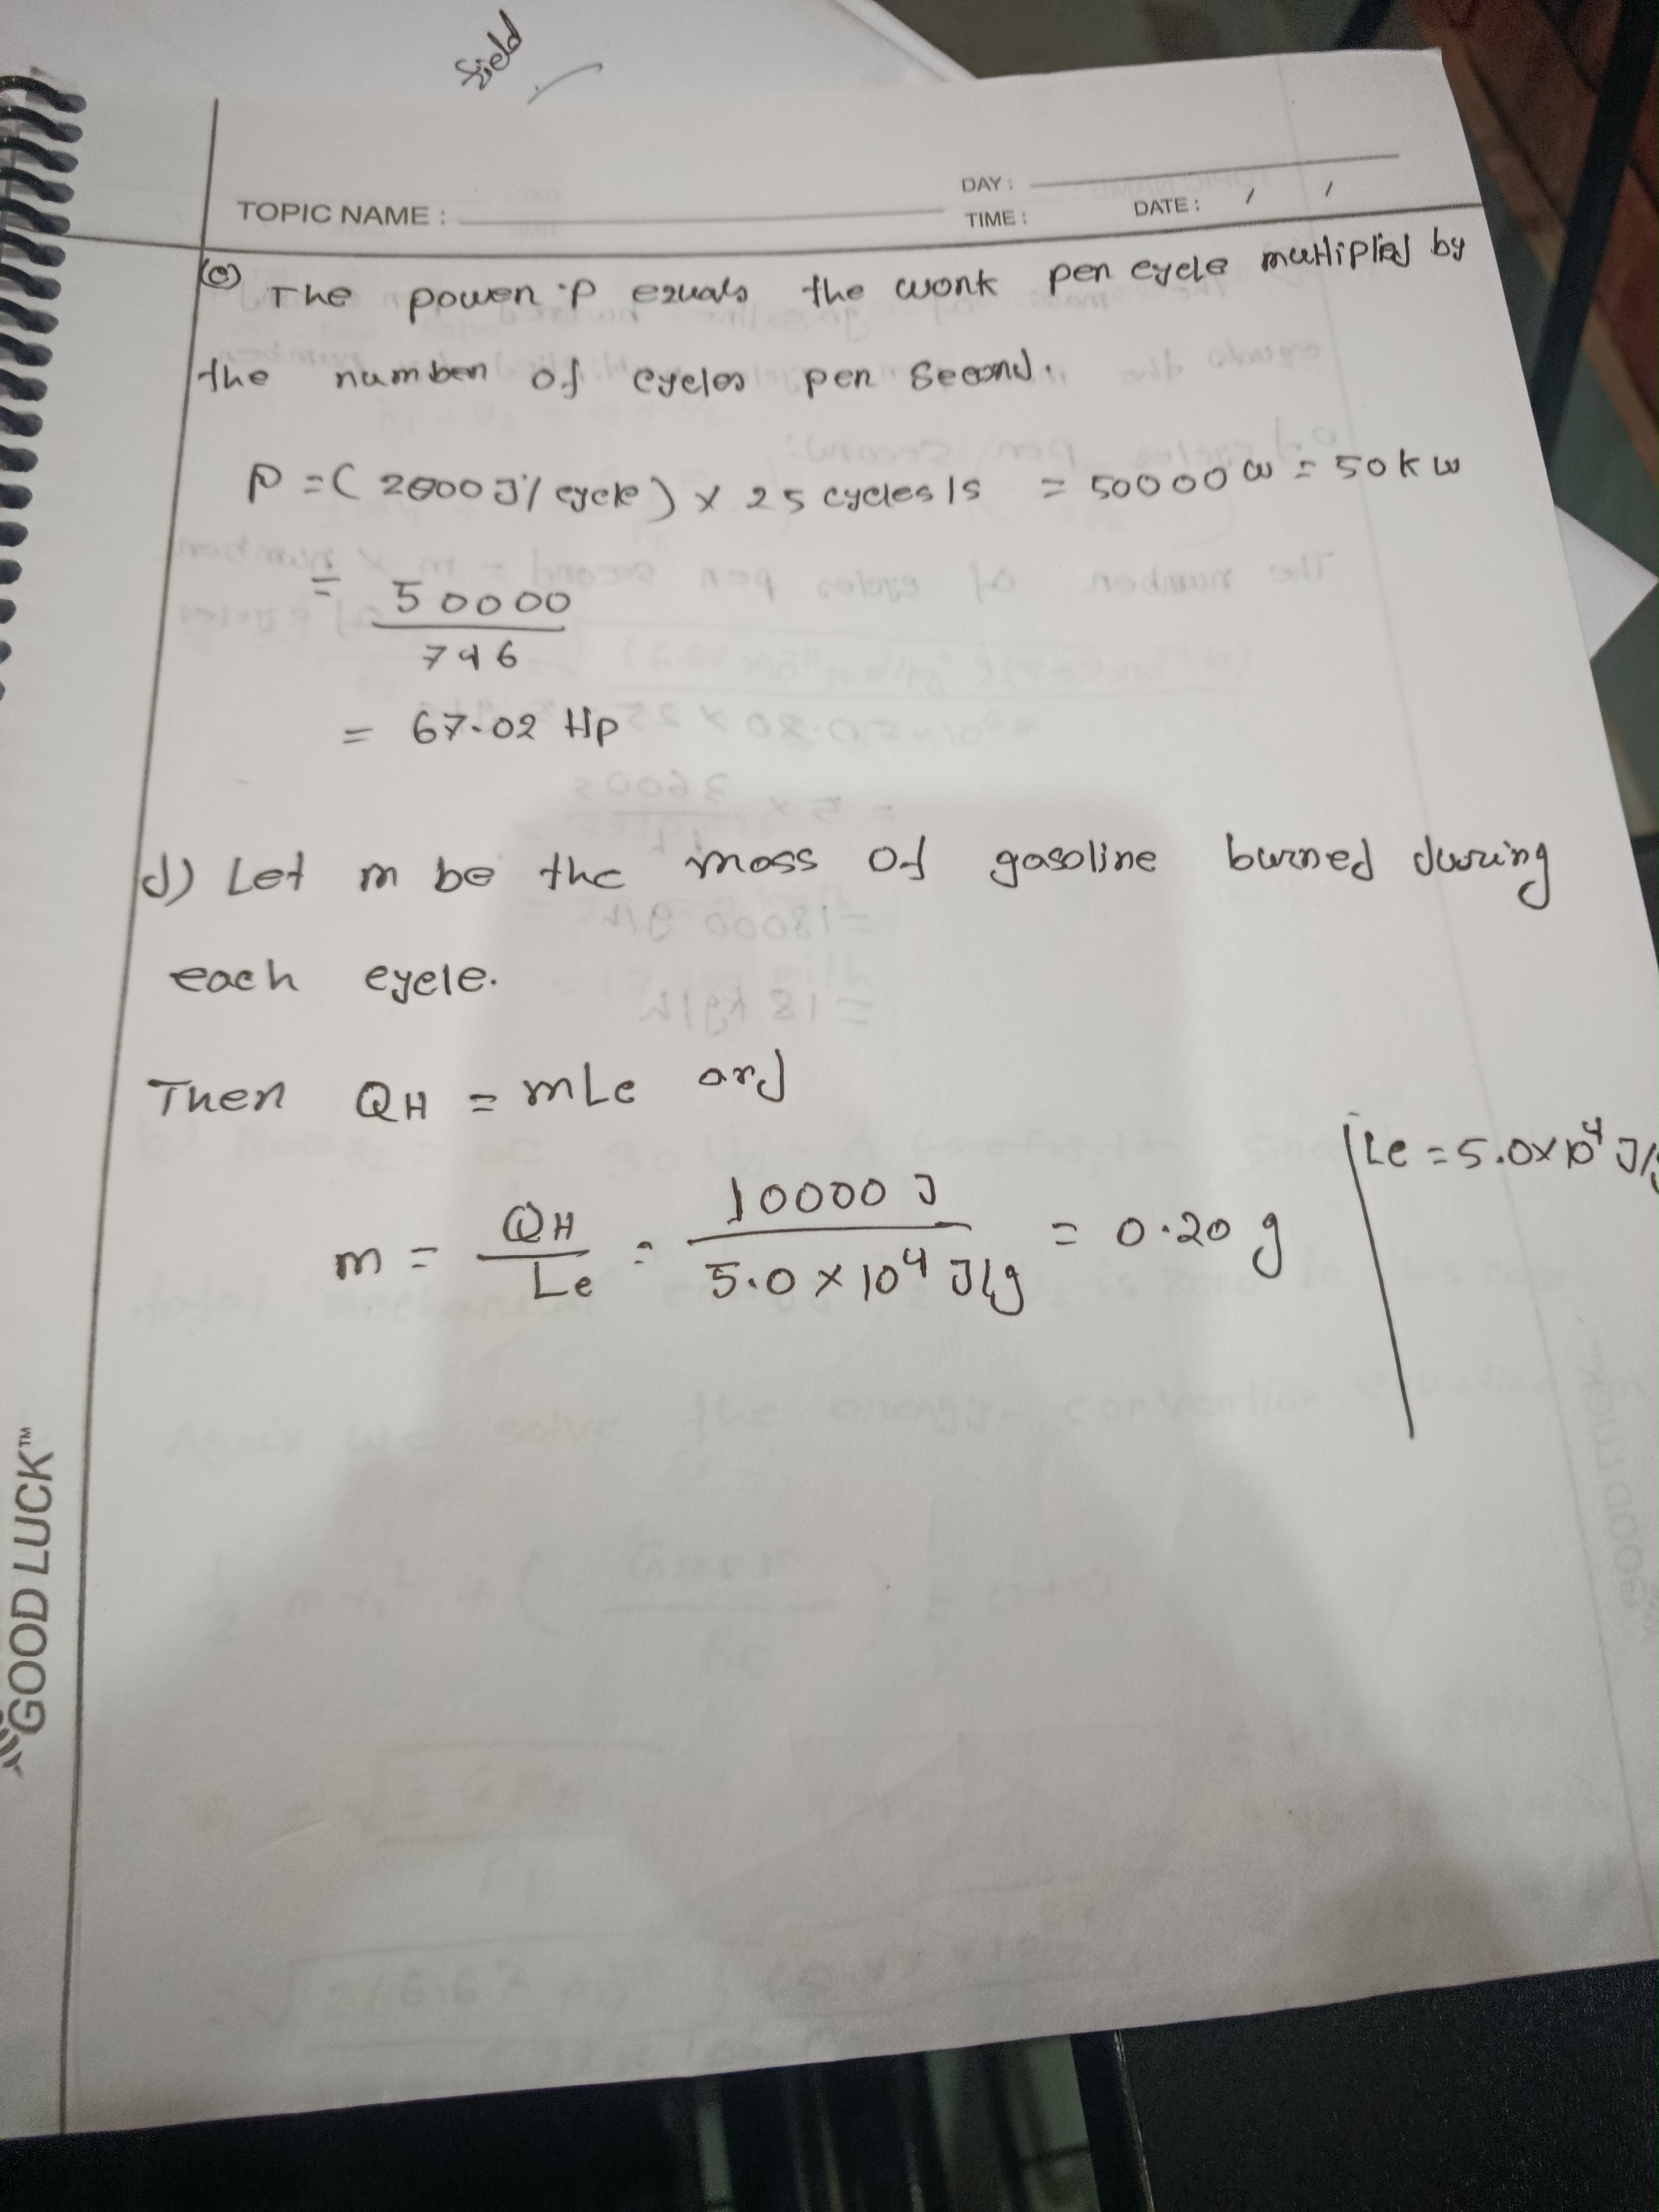 field
DAY :
TOPIC NAME :
TIME :
DATE : / /
(c) The power P equals the work per cycle multiplied by
the number of cycles per second.
P = ( 2000 J / cycle ) × 25 cycles / s = 50000 W = 50 kW
= 50000
746
= 67.02 Hp
d) Let m be the mass of gasoline burned during
each cycle.
Then QH = mLc and
Lc = 5.0×10⁴ J/g
m = QH / Lc = 10000 J / 5.0 × 10⁴ J/g = 0.20 g
GOOD LUCK™